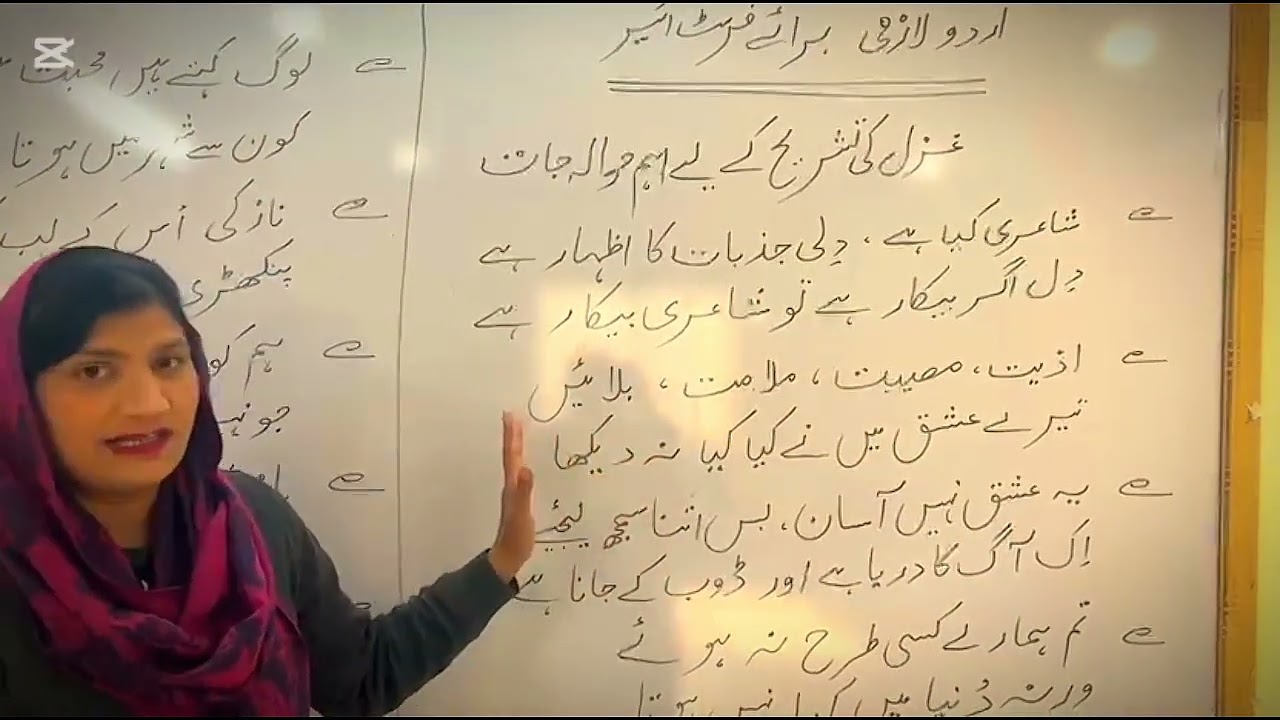 اردو لازمی برائے فرسٹ ائیر
غزل کی تشریح کے لیے اہم حوالہ جات
شاعری کیا ہے ، دِلی جذبات کا اظہار ہے
دِل اگر بیکار ہے تو شاعری بیکار ہے
اذیت، مصیبت ، ملامت ، بلائیں
تیرے عشق میں نے کیا کیا نہ دیکھا
یہ عشق نہیں آسان، بس اتنا سمجھ لیجئے
اِک آگ کا دریا ہے اور ڈوب کے جانا ہے
تم ہمارے کسی طرح نہ ہوئے
ورنہ دُنیا میں کیا نہیں ہوتا
لوگ کہتے ہیں محبت
کون سے شہر میں ہوتا
نازکی اُس کے لب
پنکھڑی
ہم کو